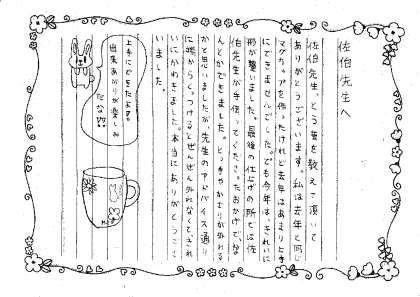 佐伯先生へ
佐伯先生、とう芸を教えて頂いて
ありがとうございます。私は去年と同じ
マグカップを作ったけれど去年はあまり上手
にできませんでした。でも今年は、きれいに
形が整いました。最後の仕上げの所では佐
伯先生が手伝ってくださったおかげで、な
んとかできました。とっ手やかざりが外れる
かと思いましたが先生のアドバイス通り
に端からくっつけるとぜんぜん外れなくて、きれ
いにかわきました。本当にありがとうござ
いました。
上手にできたよ。
出来あがりが楽しみ
だな!!